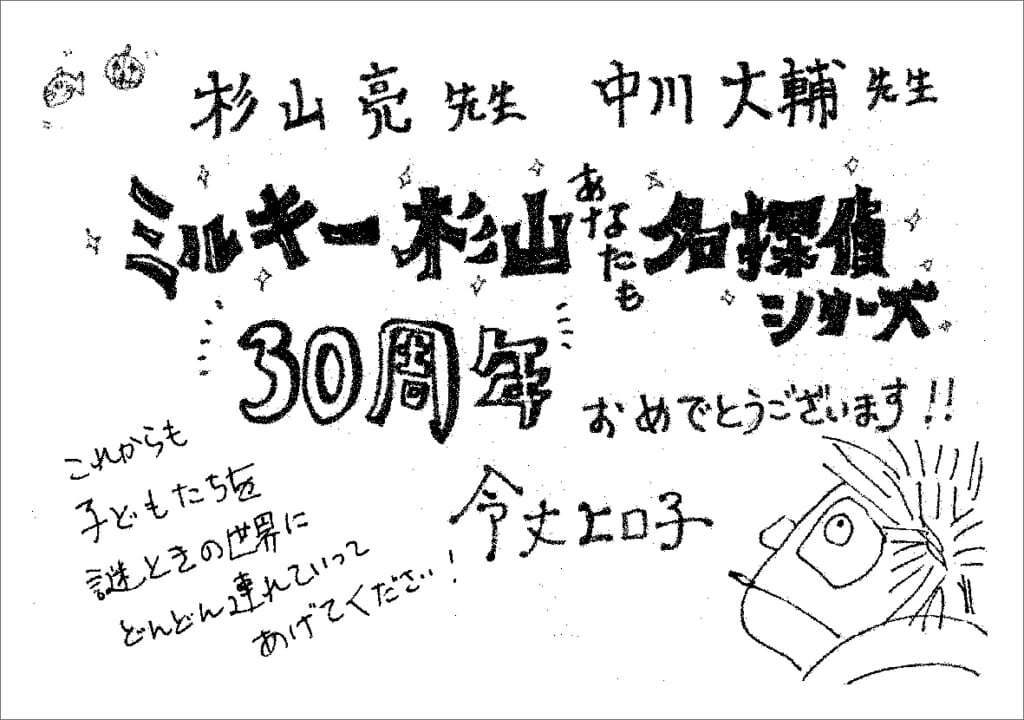 杉山亮先生 中川大輔先生
ミルキー杉山あなたも名探偵
シリーズ
30周年
おめでとうございます!!
これからも
子どもたちを
謎ときの世界に
どんどん連れていって
あげてください!
令丈ヒロ子